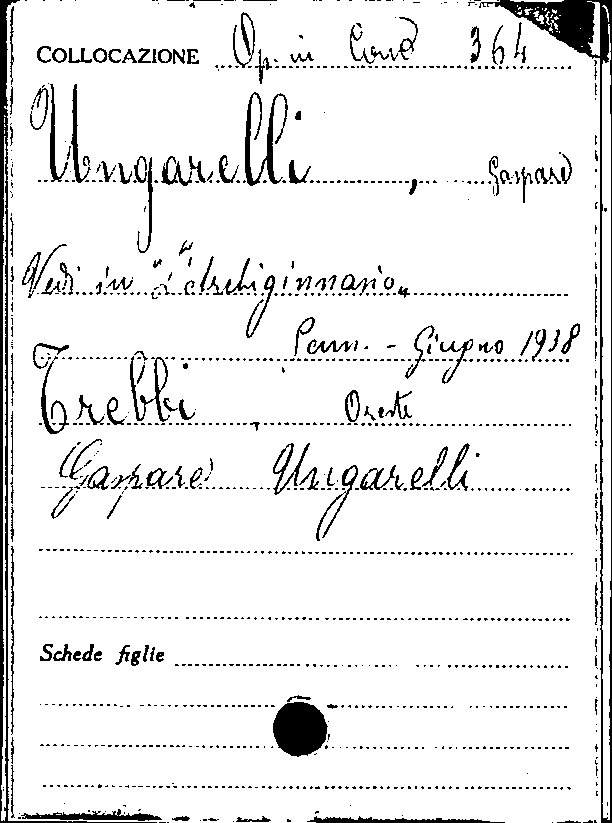 COLLOCAZIONE Op. in Cons 364
Ungarelli, Gaspare
Vedi in "L'Archiginnasio"
Genn. - Giugno 1938
Trebbi, Oreste
Gaspare Ungarelli
Schede figlie